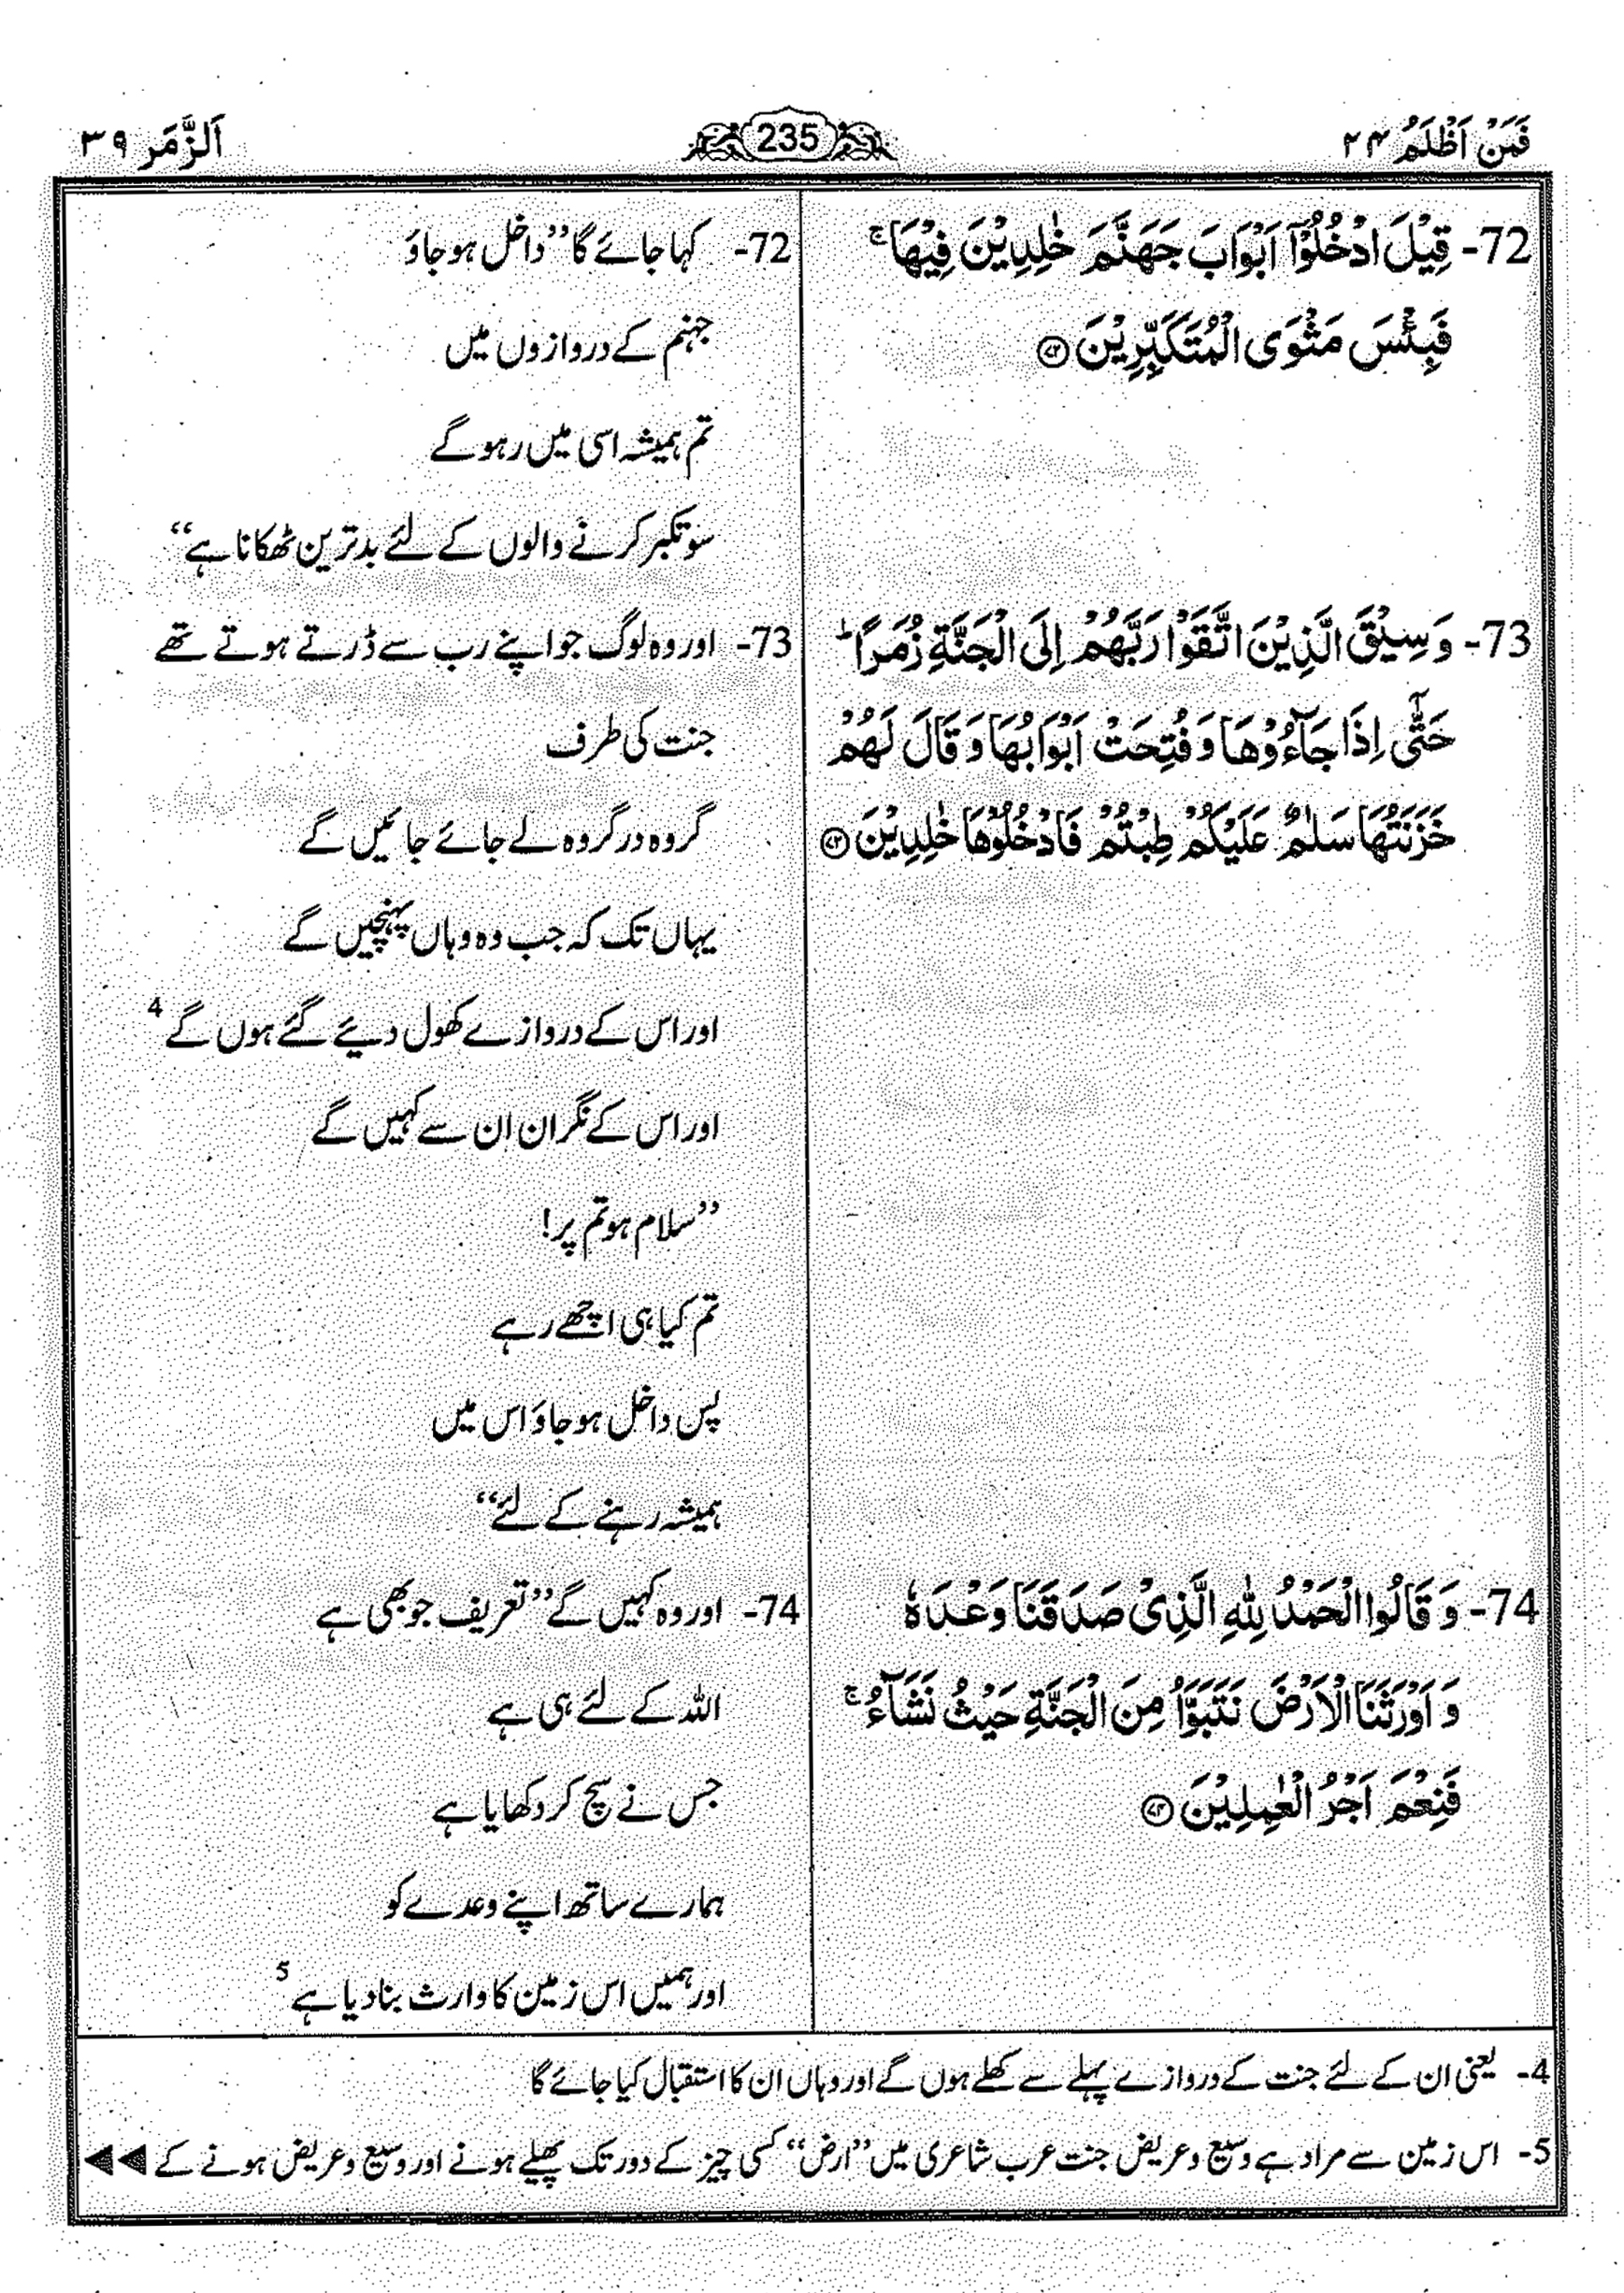 فَمَنْ اَظْلَمُ ۲۴
235
اَلزُّمَر ۳۹
72- قِيْلَ ادْخُلُوْۤا اَبْوَابَ جَهَنَّمَ خٰلِدِيْنَ فِيْهَا ۚ
فَبِئْسَ مَثْوَى الْمُتَكَبِّرِيْنَ ﴿۷۲﴾
73- وَ سِيْقَ الَّذِيْنَ اتَّقَوْا رَبَّهُمْ اِلَى الْجَنَّةِ زُمَرًا ؕ
حَتّٰۤى اِذَا جَآءُوْهَا وَ فُتِحَتْ اَبْوَابُهَا وَ قَالَ لَهُمْ
خَزَنَتُهَا سَلٰمٌ عَلَيْكُمْ طِبْتُمْ فَادْخُلُوْهَا خٰلِدِيْنَ ﴿۷۳﴾
74- وَ قَالُوا الْحَمْدُ لِلّٰهِ الَّذِيْ صَدَقَنَا وَعْدَهٗ
وَ اَوْرَثَنَا الْاَرْضَ نَتَبَوَّاُ مِنَ الْجَنَّةِ حَيْثُ نَشَآءُ ۚ
فَنِعْمَ اَجْرُ الْعٰمِلِيْنَ ﴿۷۴﴾
72- کہا جائے گا ’’داخل ہو جاؤ
جہنم کے دروازوں میں
تم ہمیشہ اسی میں رہو گے
سو تکبر کرنے والوں کے لئے بدترین ٹھکانا ہے‘‘
73- اور وہ لوگ جو اپنے رب سے ڈرتے ہوتے تھے
جنت کی طرف
گروہ در گروہ لے جائے جائیں گے
یہاں تک کہ جب وہ وہاں پہنچیں گے
اور اس کے دروازے کھول دیئے گئے ہوں گے 4
اور اس کے نگران ان سے کہیں گے
’’سلام ہو تم پر!
تم کیا ہی اچھے رہے
پس داخل ہو جاؤ اس میں
ہمیشہ رہنے کے لئے‘‘
74- اور وہ کہیں گے ’’تعریف جو بھی ہے
اللہ کے لئے ہی ہے
جس نے سچ کر دکھایا ہے
ہمارے ساتھ اپنے وعدے کو
اور ہمیں اس زمین کا وارث بنا دیا ہے 5
4- یعنی ان کے لئے جنت کے دروازے پہلے سے کھلے ہوں گے اور وہاں ان کا استقبال کیا جائے گا
5- اس زمین سے مراد ہے وسیع و عریض جنت عرب شاعری میں ’’ارض‘‘ کسی چیز کے دور تک پھیلے ہونے اور وسیع و عریض ہونے کے ◀◀